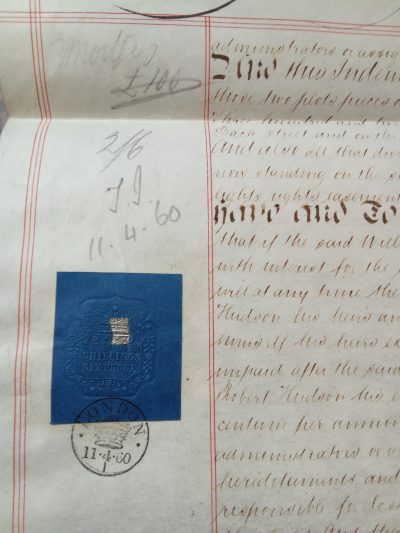 Mortge
£100
2/6
J.J.
11.4.60
SHILLINGS
SIX PENCE
LONDON
11·4·60
1
administrators or assig
And this Inden
those two plots pieces o
three hundred and
Back Street and on the
And also all that dw
now standing on the s
rights easement
Have and To
that if the said Will
with interest for the
will at any time the
Hudson his heirs an
himself his heirs ex
unpaid after the said
Robert Hudson his e
centum per annum
administrators or a
hereditaments and
responsible for loss